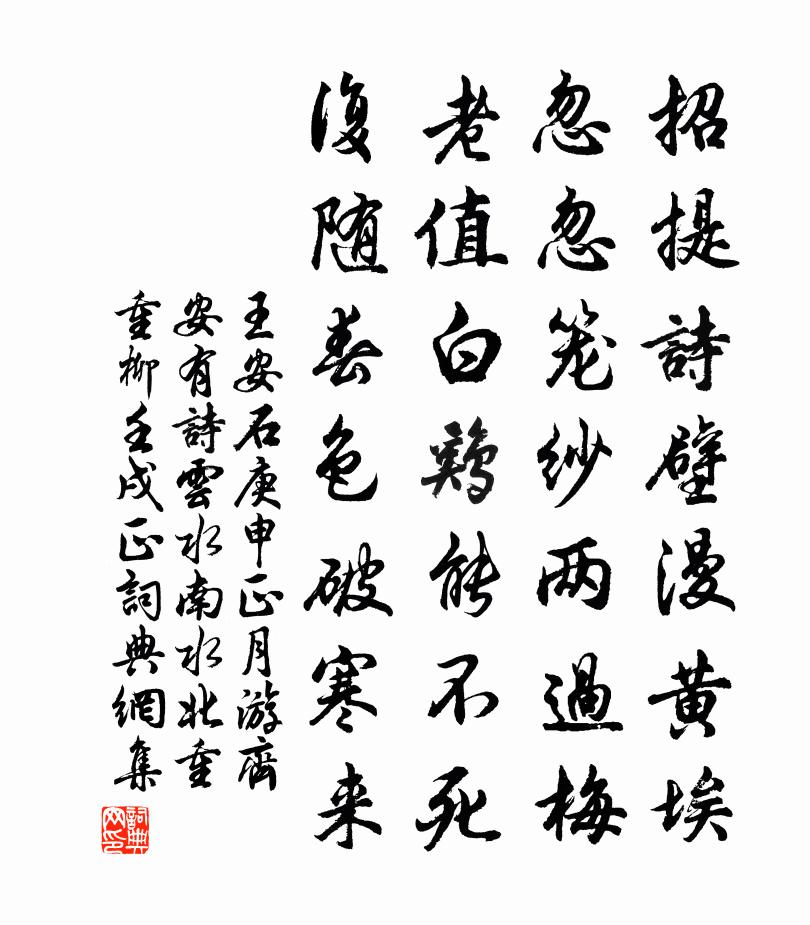 招提詩壁漫黄埃
忽忽笼纱两過梅
老值白鷄能不死
復随春色破寒来
王安石庚申正月游齊
安有詩雲水南水北重
重柳壬戌正詞典網集
詞典网印